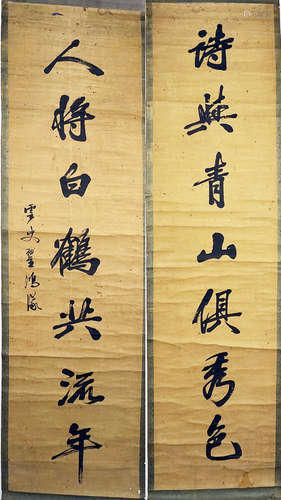 詩與青山俱秀色
人將白鶴共流年
雲史翟鴻